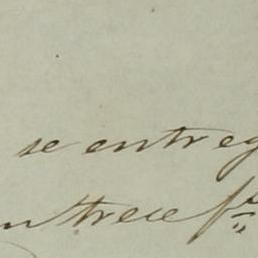 se entreg
n trece fs